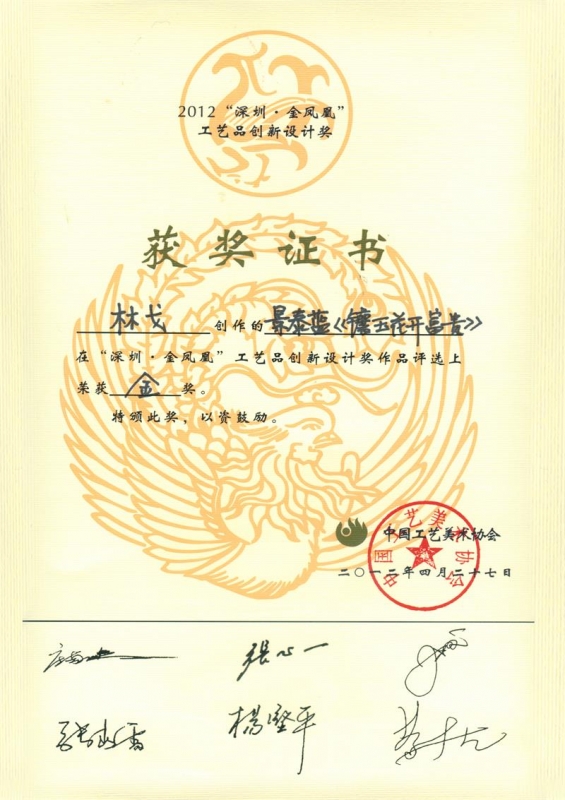 2012“深圳·金凤凰”
工艺品创新设计奖
获奖证书
林戈 创作的 景泰蓝《镶玉花开富贵》
在“深圳·金凤凰”工艺品创新设计奖作品评选上
荣获 金 奖。
特颁此奖，以资鼓励。
中国工艺美术协会
中国工艺美术协会
二〇一二年四月二十七日
张心一
杨坚平